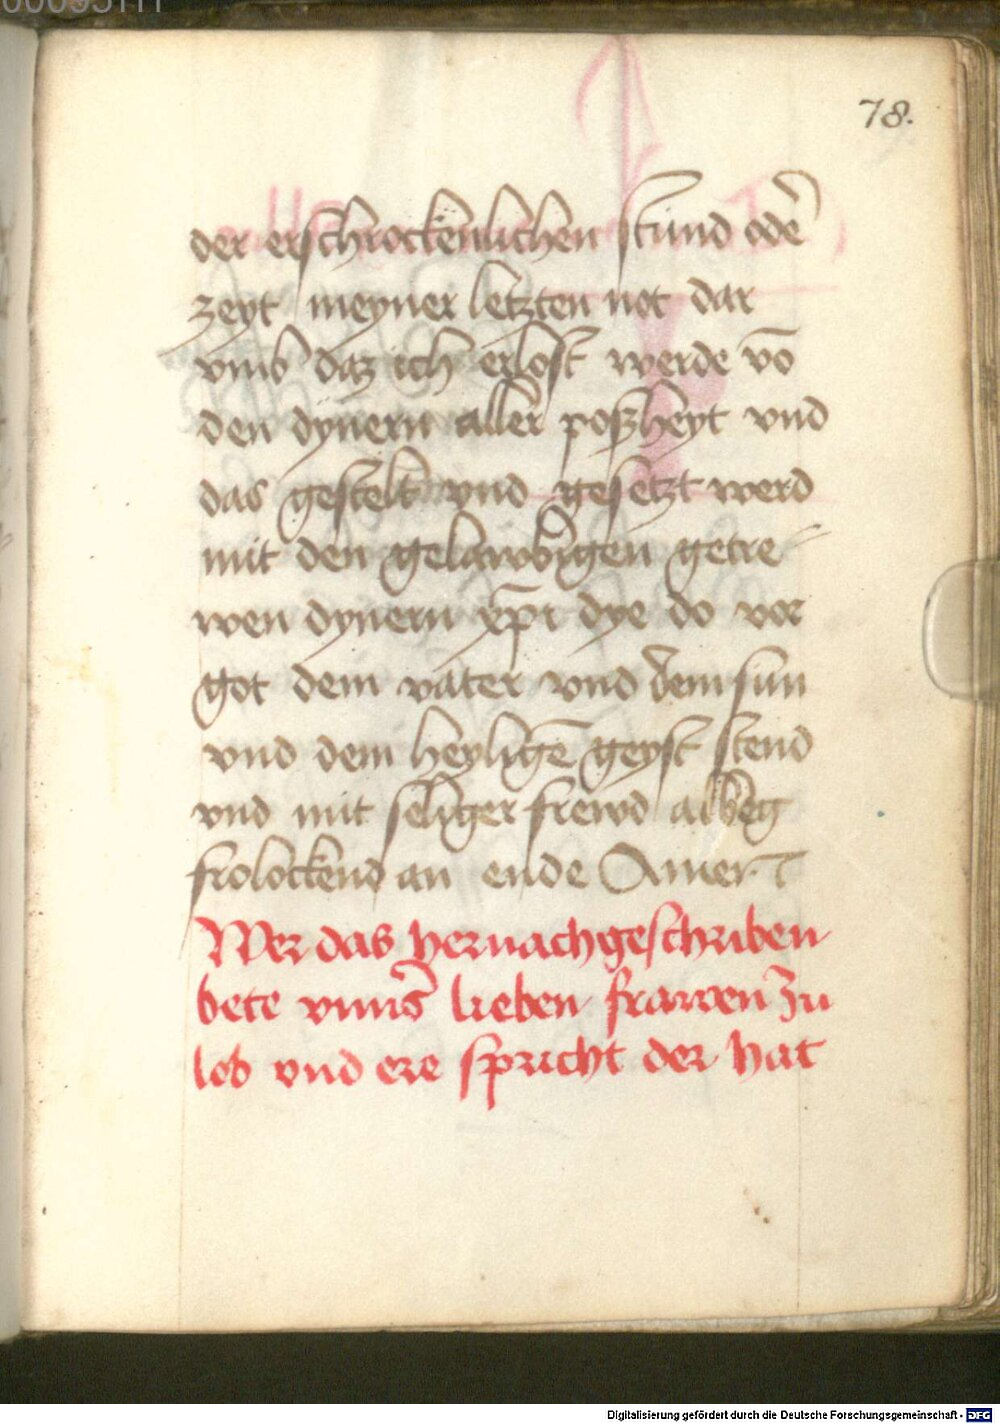 78.
der erschrockenlichen stund oder̄
zeyt meyner letzten not dar
vmb daz ich erlost werde vō
den dynern aller poßheyt vnd
das gestelt vnd gesetzt werd
mit den gelawbigen getre
wen dynern xp̄i dye do vor
got dem vater vnd dem sun
vnd dem heyligē geyst stend
vnd mit seliger frewd albeg
frolockend an ende Amen
Wer das hernachgeschriben
bete vnnser lieben frawen zu
lob vnd ere spricht der hat
Digitalisierung gefördert durch die Deutsche Forschungsgemeinschaft - DFG